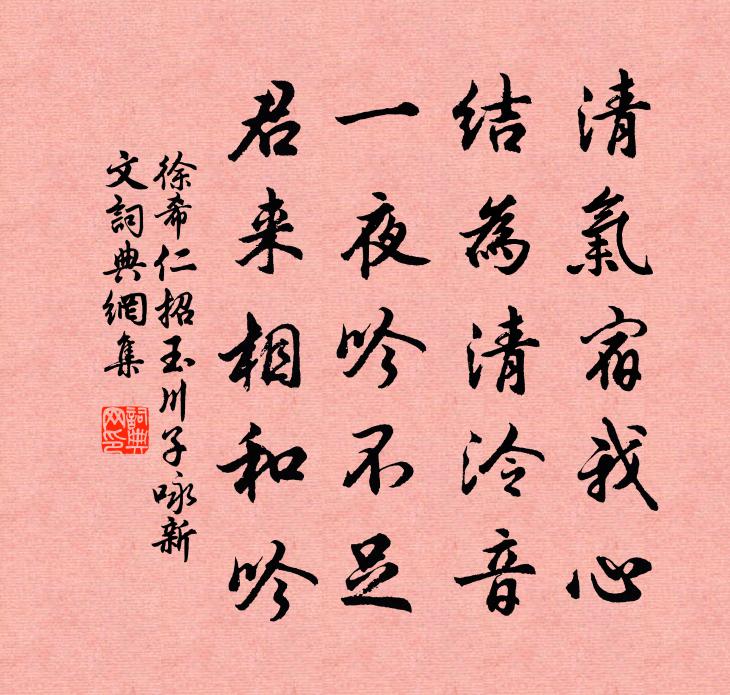 清氣宿我心
结為清泠音
一夜吟不足
君来相和吟
徐希仁招玉川子咏新
文詞典網集
詞典
网印